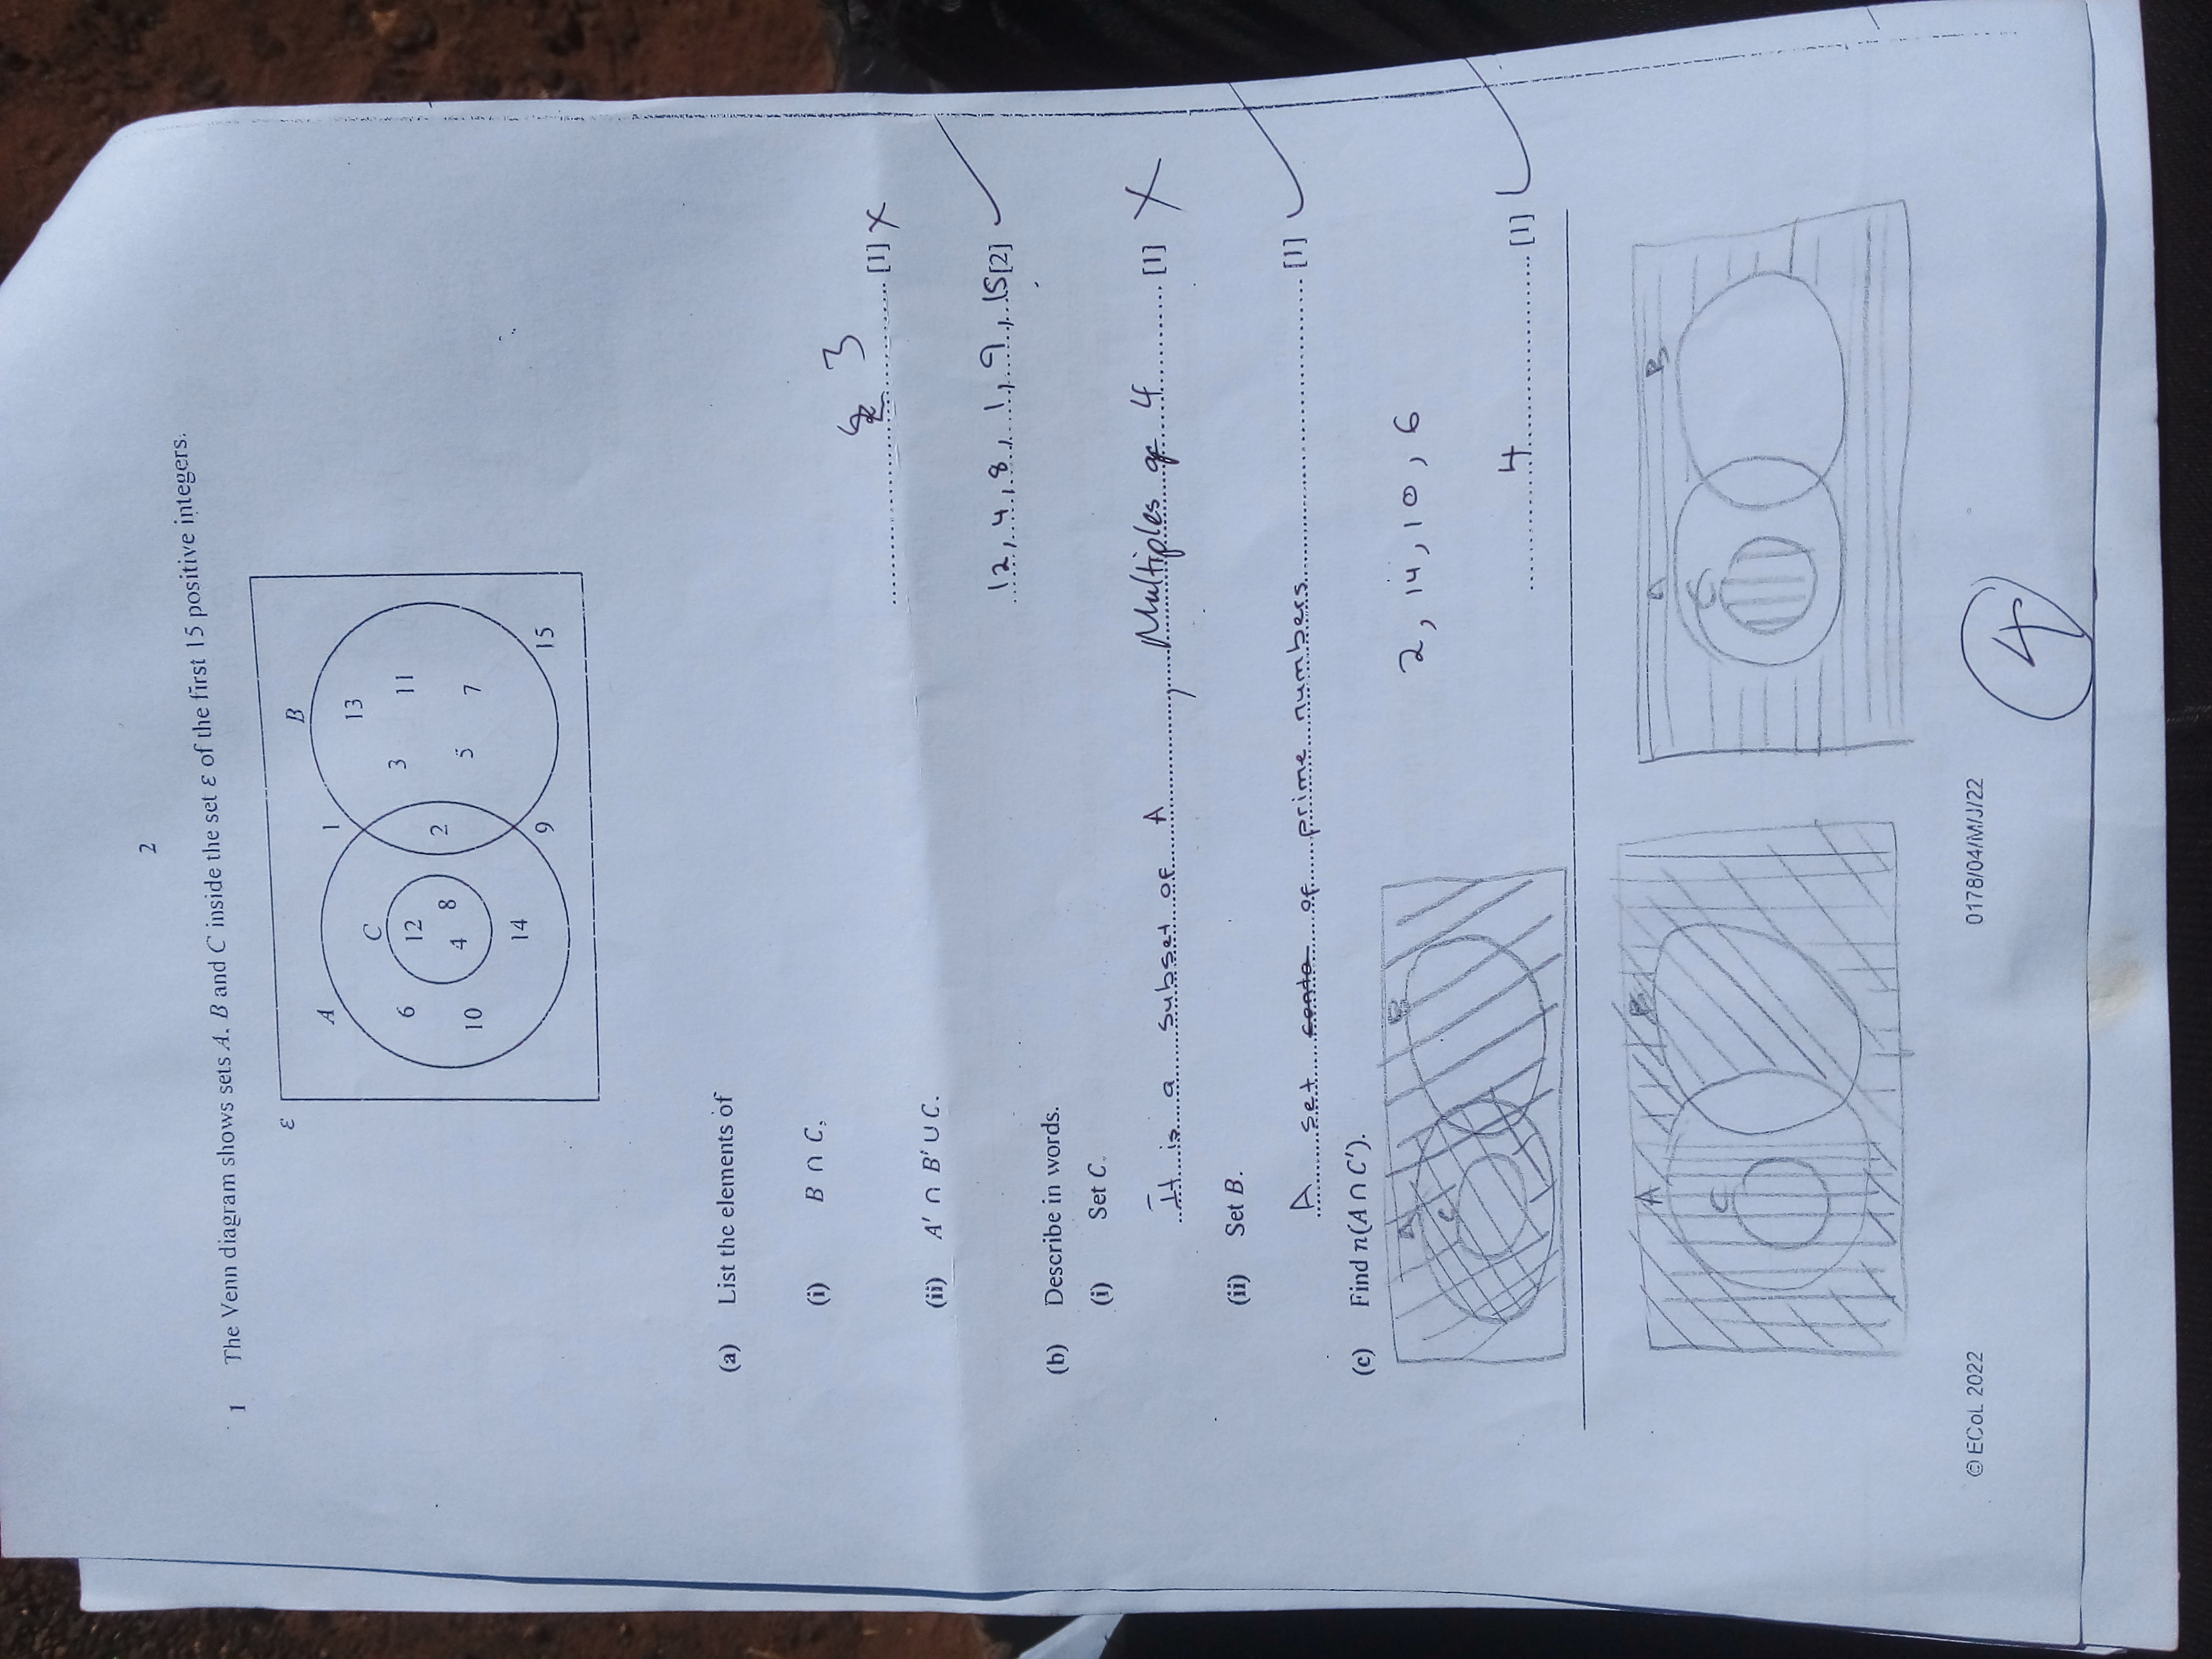 2
1 The Venn diagram shows sets A, B and C inside the set ε of the first 15 positive integers.
ε
B
A
1
13
C
6
12
3
11
4
8
2
10
5
7
14
9
15
(a) List the elements of
(i) B ∩ C,
3
[1] ×
(ii) A′ ∩ B′ ∪ C.
12, 4, 8, 1, 9, 15 [2] ✓
(b) Describe in words.
(i) Set C.
It is a subset of A, Multiples of 4 [1] ×
(ii) Set B.
A set of prime numbers [1] ✓
(c) Find n(A ∩ C′).
A B
C
2, 14, 10, 6
4 [1] ✓
A B
C
A B
C
© ECoL 2022 0178/04/M/J/22
4